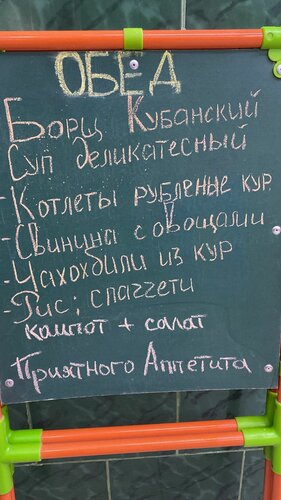 ОБЕД
Борщ Кубанский
Суп деликатесный
- Котлеты рубленые кур.
- Свинина с овощами
- Чахохбили из кур
- Рис; спагетти
кампот + салат
Приятного Аппетита